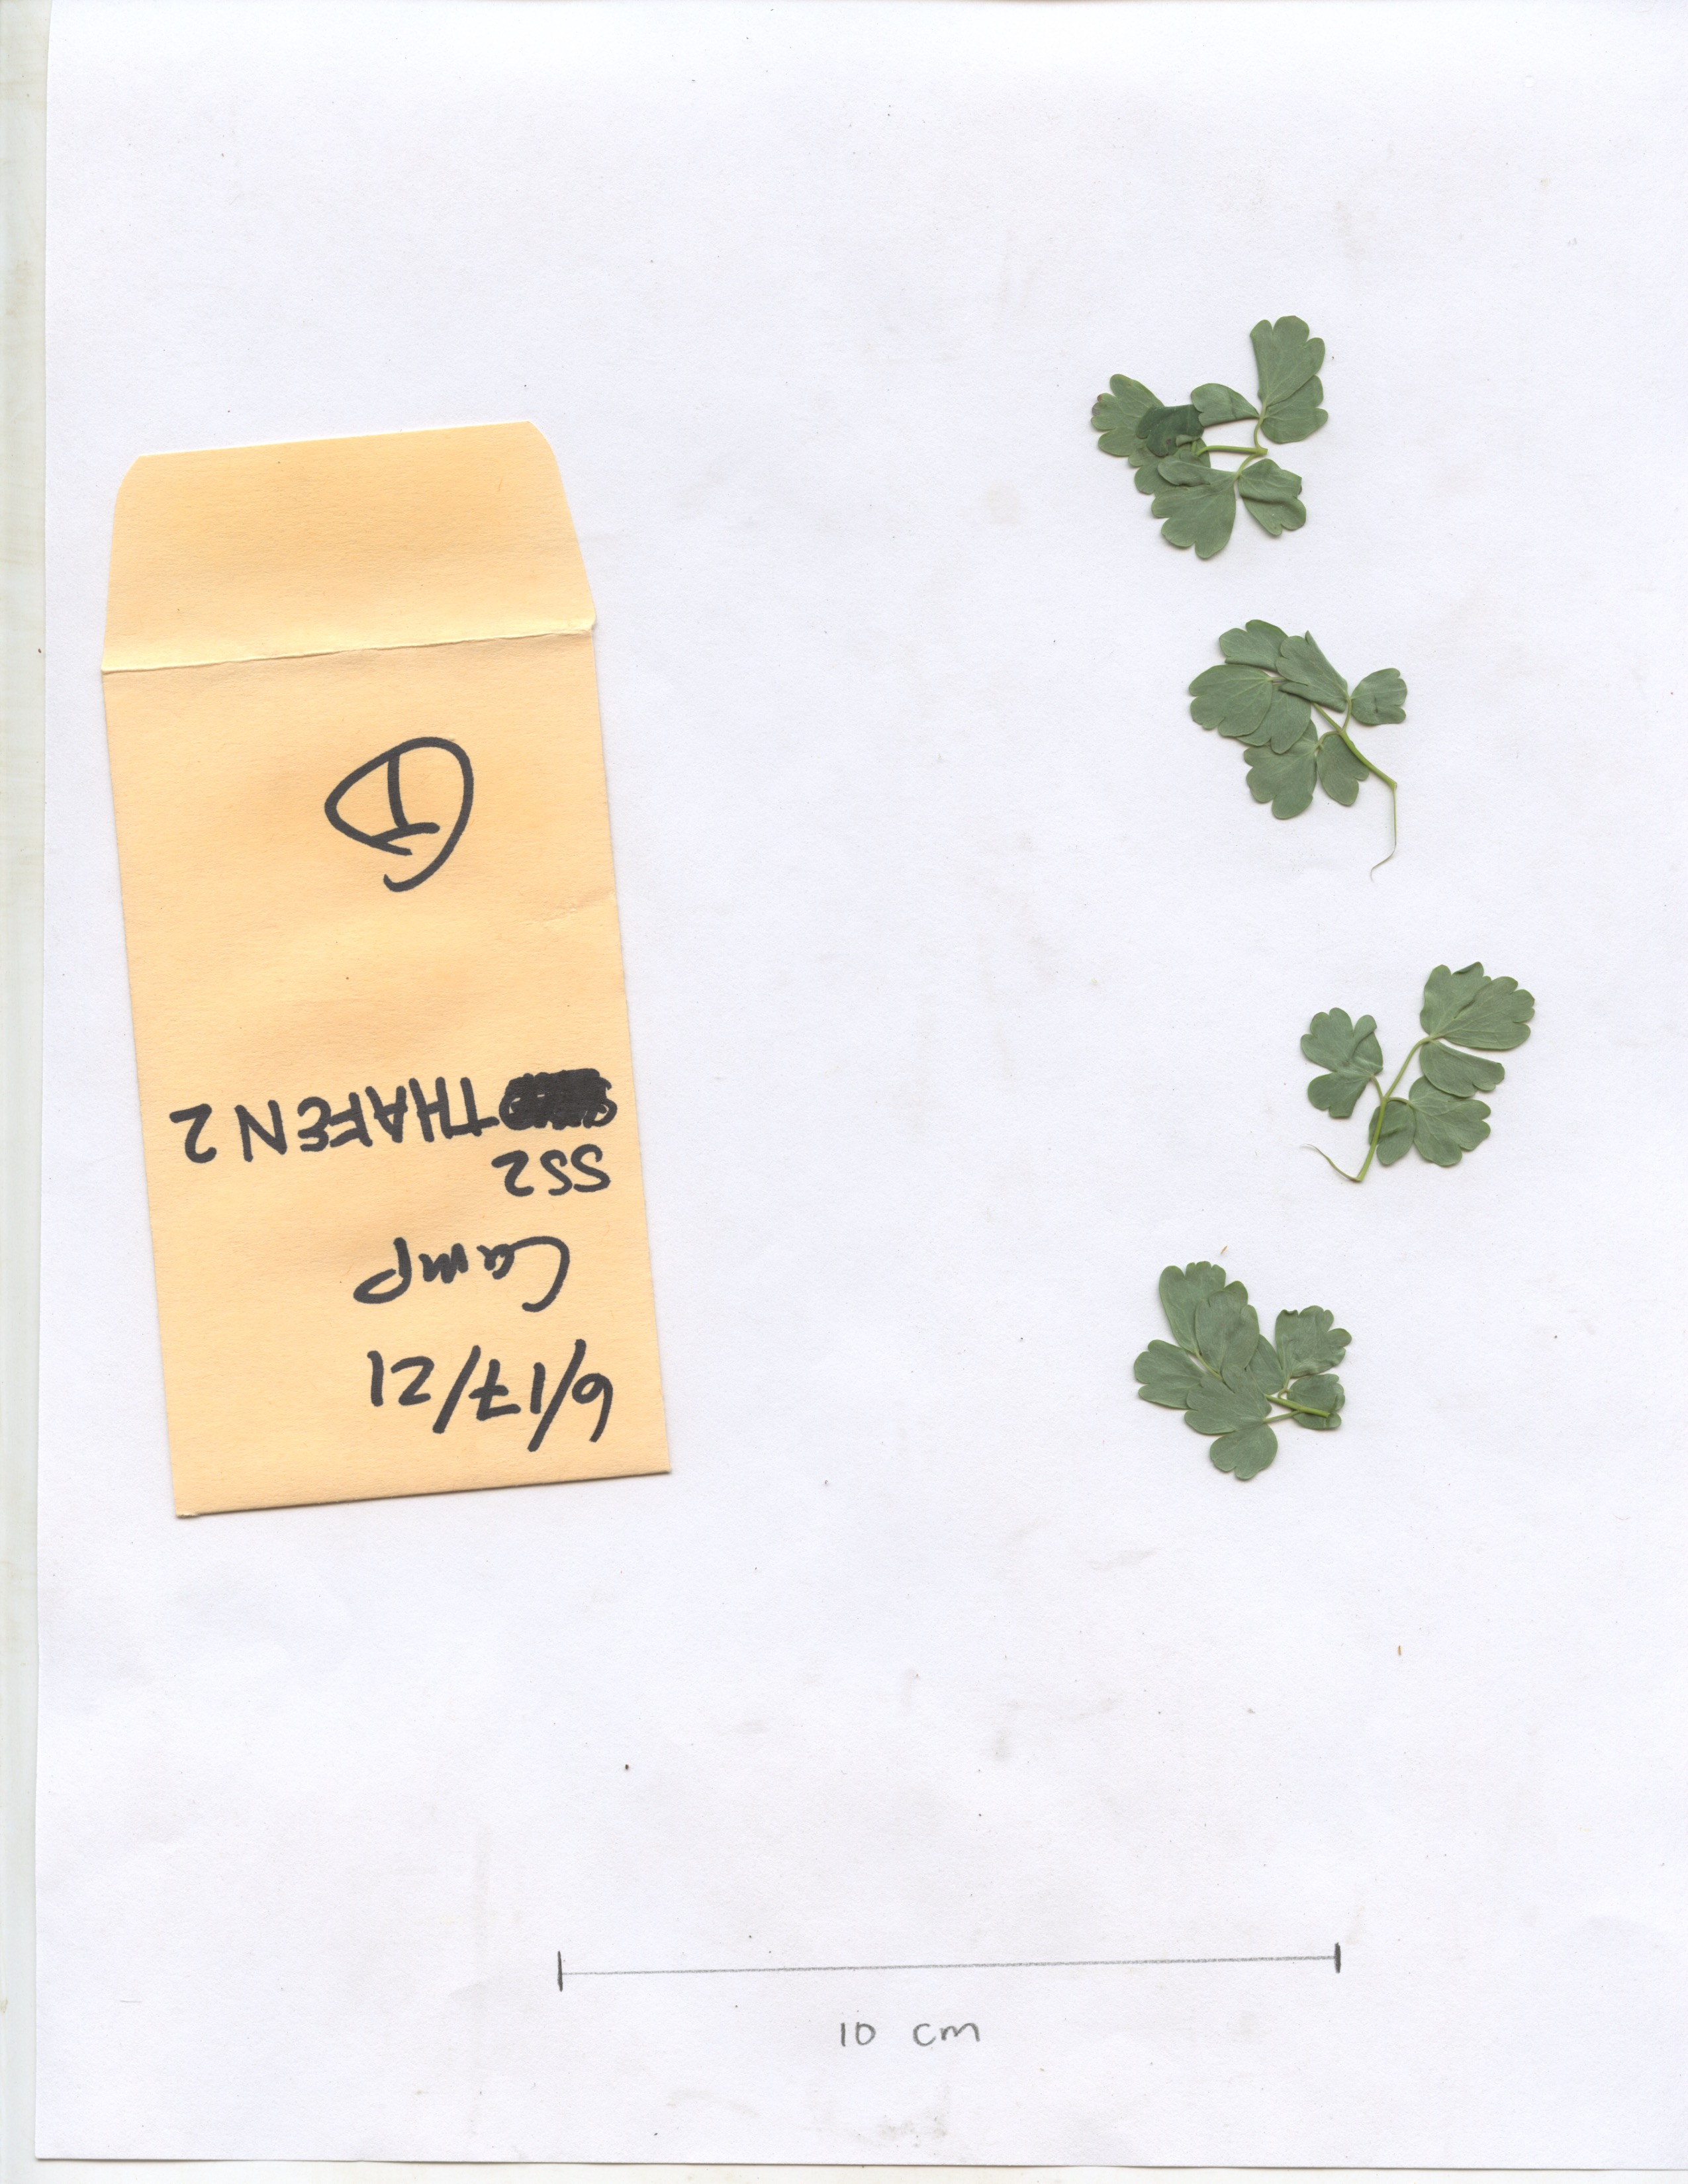 6/17/21
Camp
SS2
THAFEN2
10 cm